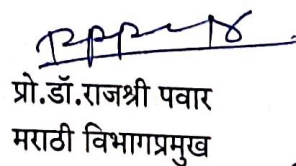 प्रो.डॉ.राजश्री पवार
मराठी विभागप्रमुख